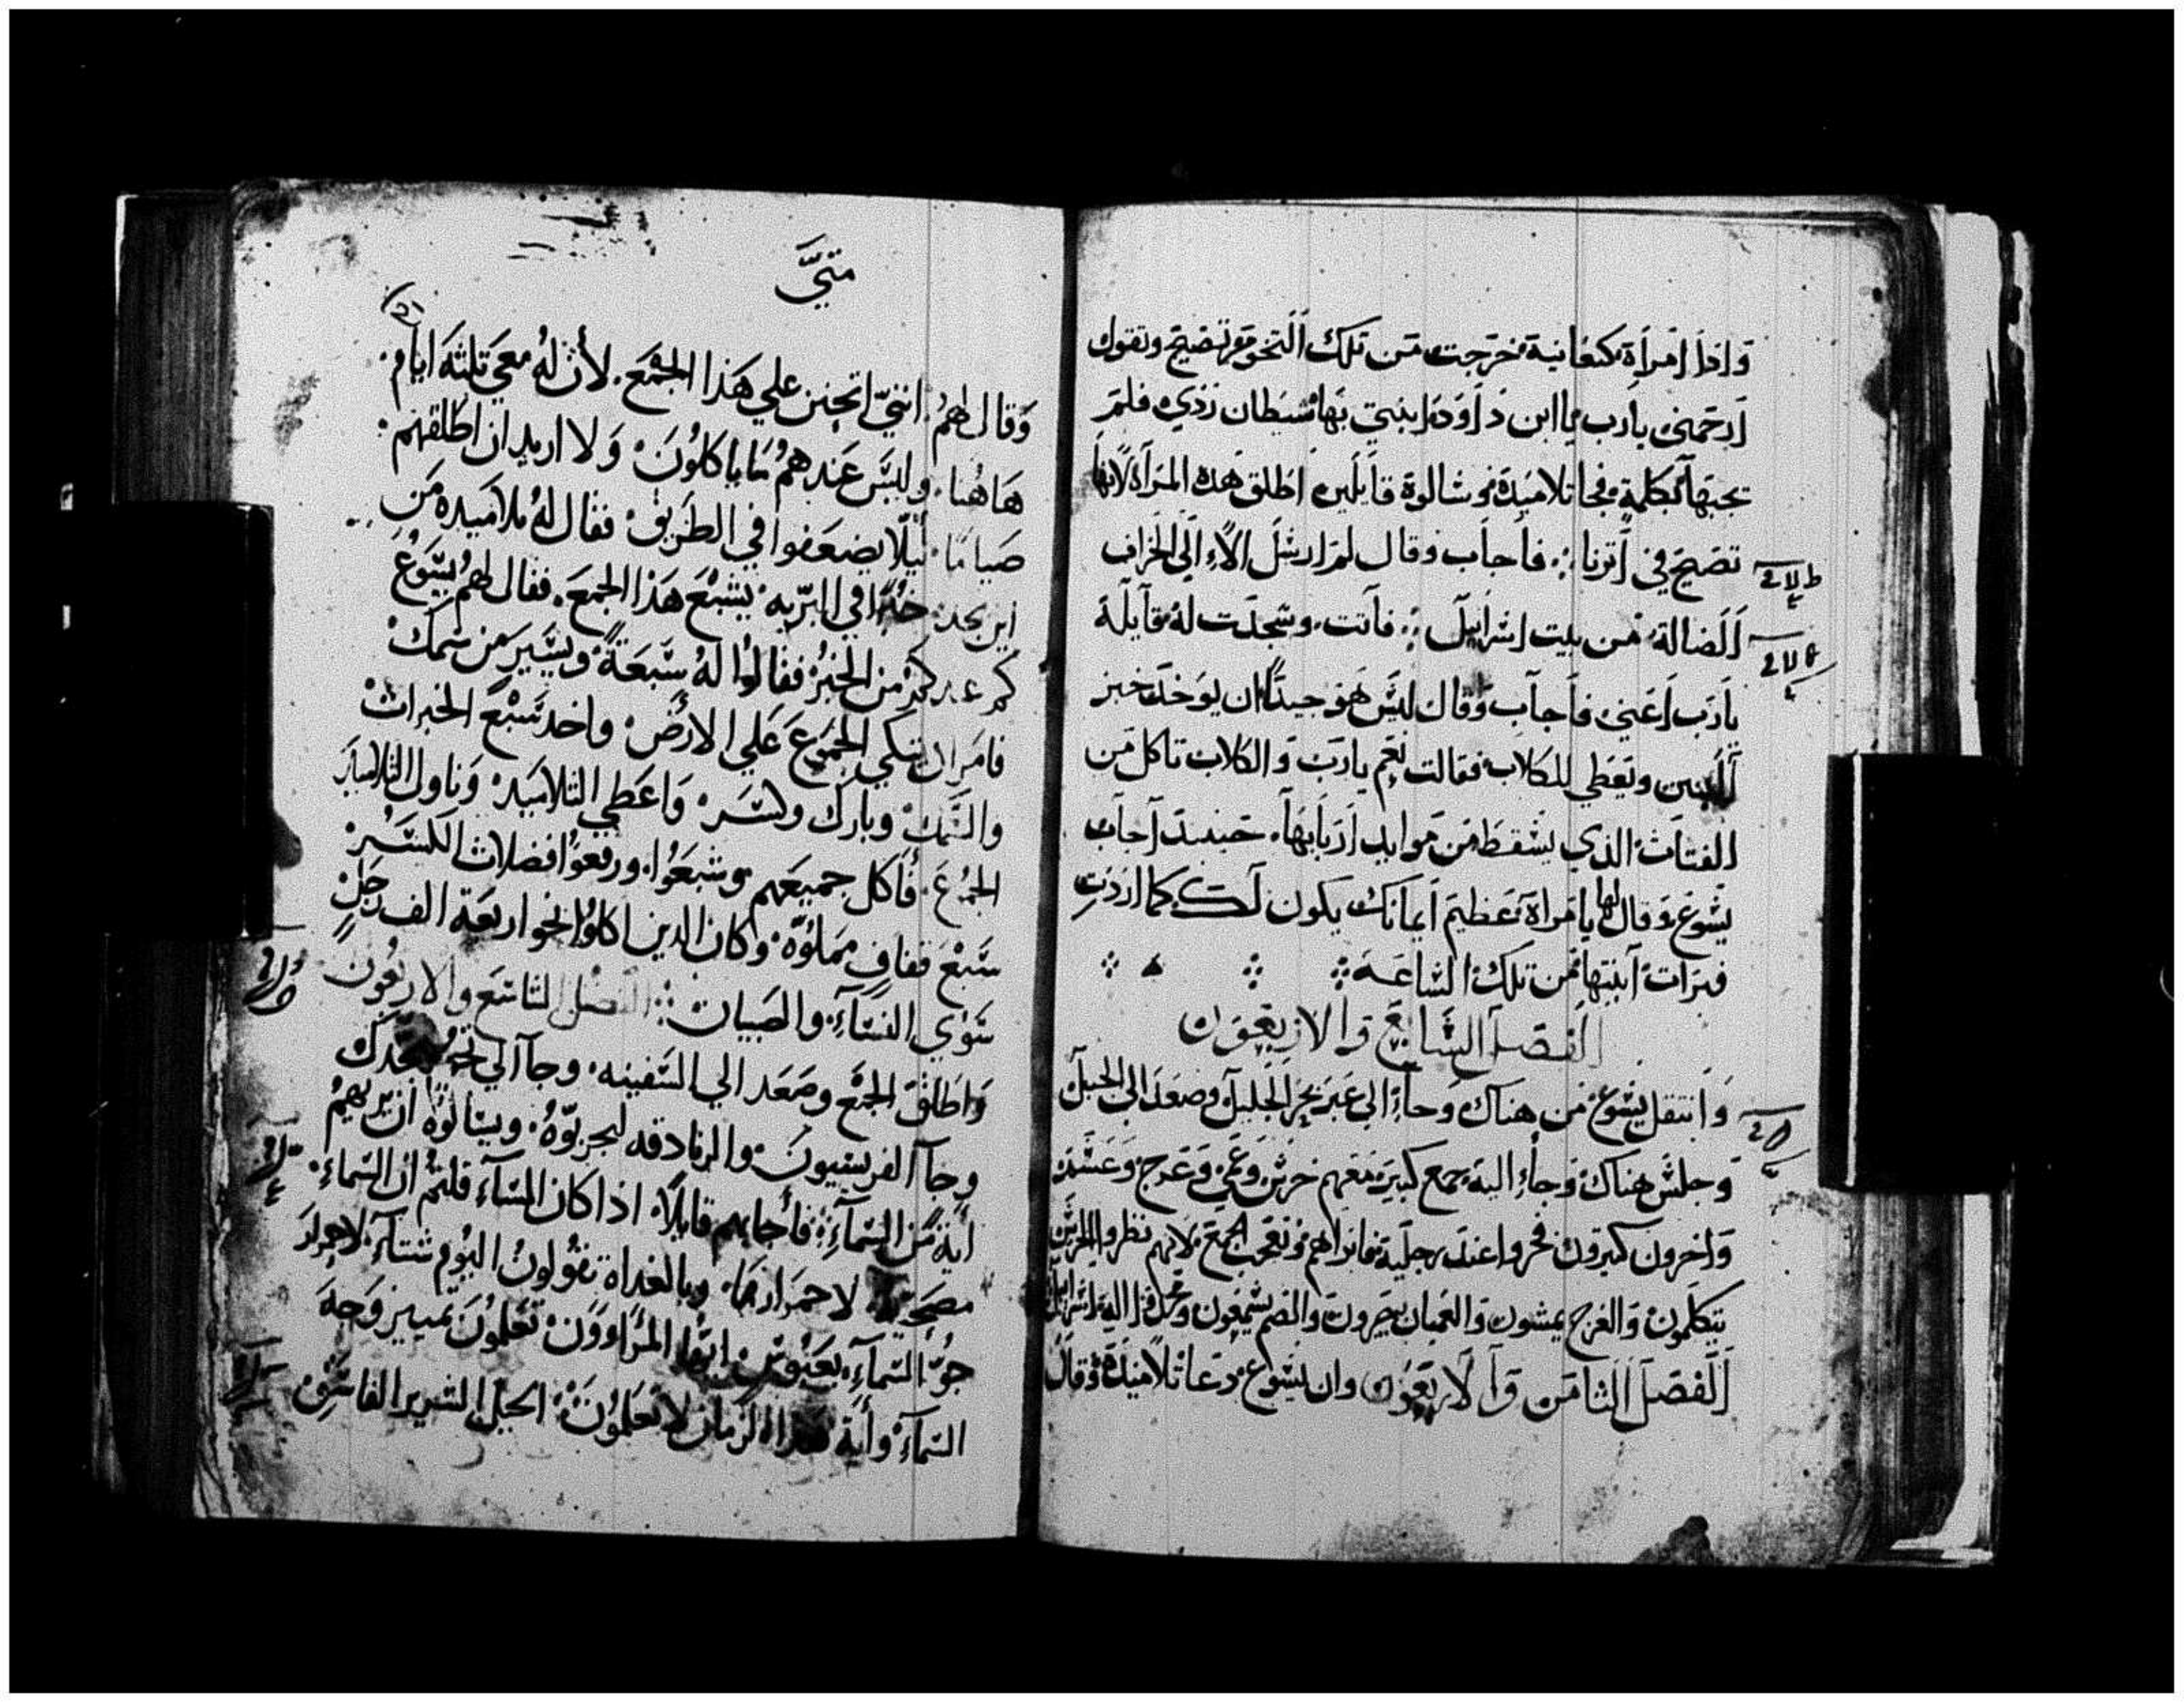 واذا امراة كنعانية خرجت من تلك النخوم تصيح وتقول
ارحمني يارب يا ابن داوود ابنتي بها شيطان ردي فلم
يجبها بكلمة فجا تلاميذه وسالوة قايلين اطلق هذه المراة لانها
تصيح في اثرنا فاجاب وقال لم ارسل الا الي الخراف
الضالة من بيت اسراييل فاتت وسجدت له قايلة
يارب اعني فاجاب وقال ليس هو جيدا ان يوخذ خبز
البنين ويعطي للكلاب فقالت نعم يارب والكلاب تاكل من
الفتات الذي يسقط من موايد اربابها حينيد اجاب
يسوع وقال لها يا مراة عظيم ايمانك يكون لك كما اردت
فبرات ابنتها من تلك الساعة
الفصل السابع والاربعون
وانتقل يسوع من هناك وجاء الي عبر بحر الجليل وصعد الي الجبل
وجلس هناك وجاء اليه جمع كبير معهم خرس وعمي وعرج وعسم
واخرون كثيرون فخروا عند رجليه فابراهم وتعجب الجمع لانهم نظروا الخرس
يتكلمون والعرج يمشون والعميان يبصرون والصم يسمعون ومجدوا اله اسراييل
الفصل الثامن والاربعون وان يسوع دعا تلاميذه وقال
متيَّ
وقال لهم انني اتحنن علي هذا الجمع لأن له معي تلتة ايام
هاهنا وليس عندهم ما ياكلون ولا اريد ان اطلقهم
صياما ليلا يضعفوا في الطريق فقال له تلاميده من
اين نجد خبزا في البريه يشبع هذا الجمع فقال لهم يسوع
كم عندكم من الخبز فقالوا له سبعة ويسير من سمك
فامر ان يتكي الجمع علي الارض واخد سبع الخبزات
والسمك وبارك وكسر واعطي التلاميد وناول التلاميد
الجمع فأكل جميعهم وشبعوا ورفعوا فضلات الكسر
سبع قفاف مملوه وكان الدين اكلوا نحو اربعة الف رجل
سوي النساء والصبيان الفصل التاسع والاربعون
واطلق الجمع وصعد الي السفينه وجا الي تخوم مجدل
وجا الفريسيون والزنادقه ليجربوه ويسالوه ان يريهم
اية من السماء فأجابهم قايلا اذا كان المساء قلتم ان السماء
مصحية لاحمرارها وبالغداة تقولون اليوم شتاء لاحمرار
جو السماء بعبوس ايها المراوون تعلمون تمييز وجه
السماء وأية هدا الزمان لا تعلمون الجيل الشرير الفاسق